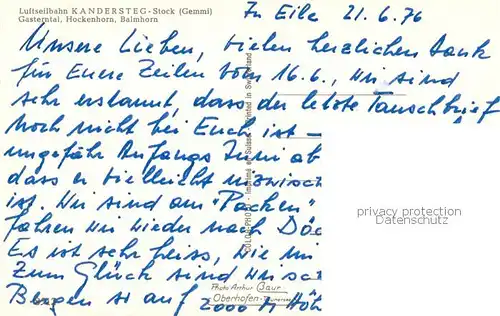 Luftseilbahn KANDERSTEG - Stock (Gemmi)
Gasterntal, Hockenhorn, Balmhorn
In Eile 21.6.76
Unsere Lieben, vielen herzlichen Dank
für Euere Zeilen vom 16.6., wir sind
sehr erstaunt, dass der letzte Tauschbrief
noch nicht bei Euch ist -
ungefähr Anfangs Juni ab
dass er vielleicht inzwisch
ist. Wir sind am "Packen"
fahren wir wieder nach
Es ist sehr heiss, wie
Zum Glück sind wir
Bergen so auf 2000 m Höh
COLORPHOTO - Imprimé en Suisse - Printed in Switzerland
Photo Arthur Baur
Oberhofen-Thunersee
privacy protection
Datenschutz